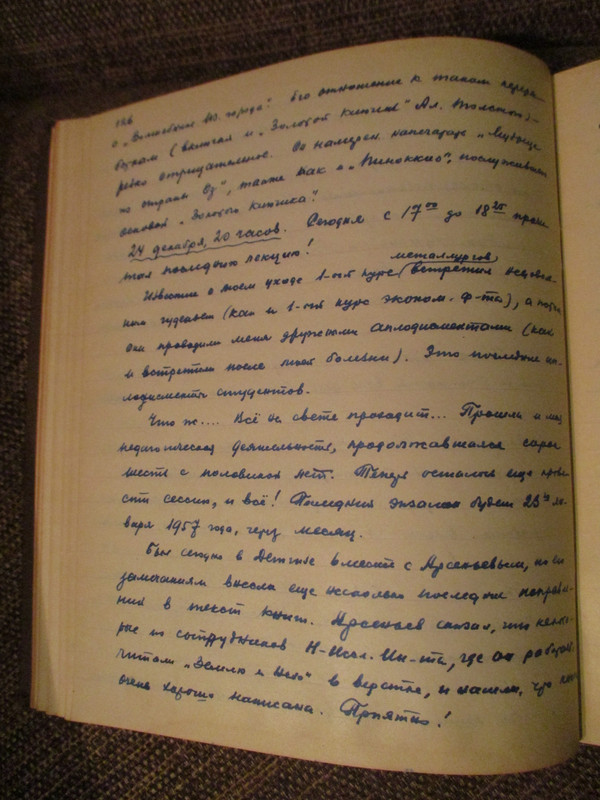 186
о „Волшебнике Из. города". Его отношение к таким переде-
букам (включая и „Золотой Ключик" Ал. Толстого) –
резко отрицательное. Он намерен. напечатать „Мудреца
из страны Оз", также как и „Пиноккио", послужившего
основой „Золотого Ключика".
24 декабря, 20 часов. Сегодня с 17⁰⁰ до 18²⁵ прочи-
тал последнюю лекцию!
металлургов
Известие о моем уходе 1-ый курс (встретил недоволь-
ным гуденьем (как и 1-ый курс эконом. ф-та), а потом
они проводили меня дружными аплодисментами (как
и встретили после моей болезни). Это последние ап-
лодисменты студентов.
Что ж.... Всё на свете проходит... Прошла и моя
педагогическая деятельность, продолжавшаяся сорок
шесть с половиной лет. Теперь осталось еще прове-
сти сессию, и всё! Последний экзамен будет 23го ян-
варя 1957 года, через месяц.
Был сегодня в Детгизе вместе с Арсеньевым, по его
замечаниям внесли еще несколько последние поправле-
ния в текст книги. Арсеньев сказал, что некото-
рые из сотрудников Н-Иссл. Ин-та, где он работает,
читали „Землю и Небо" в верстке, и нашли, что книга
очень хорошо написана. Приятно!